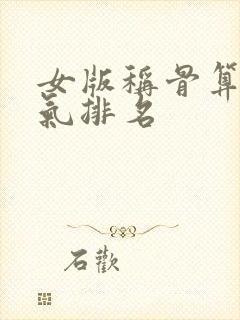 女版稱骨算
氣排名
石歡